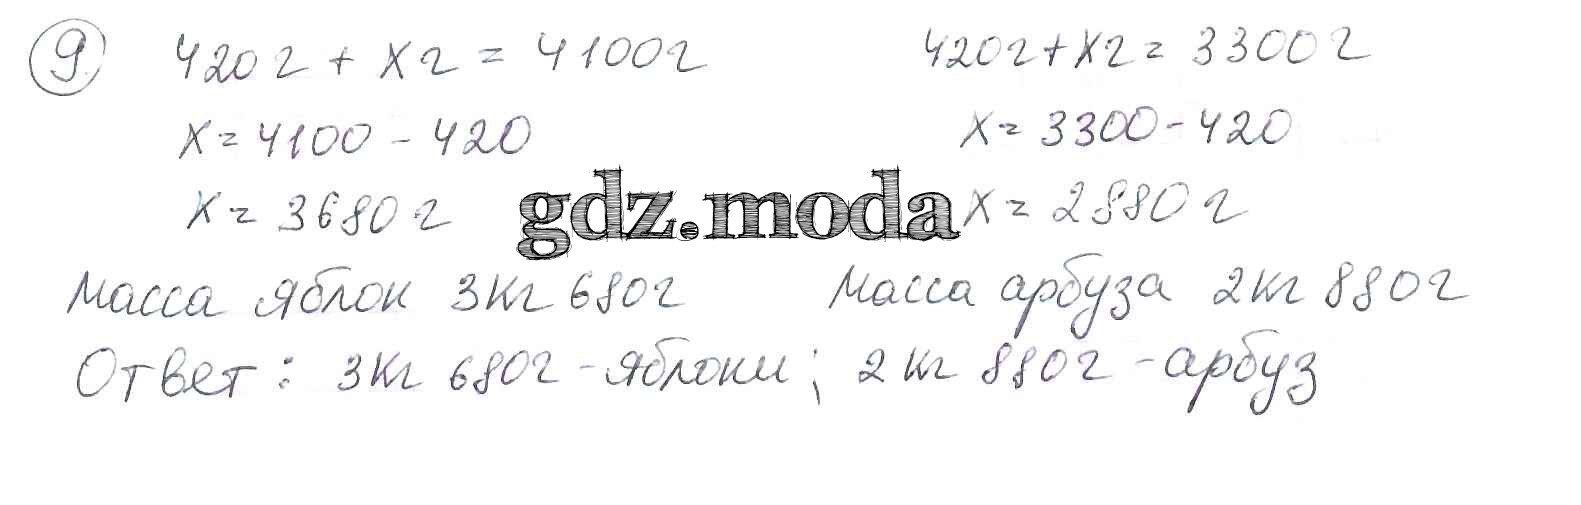 9. 420г + Xг = 4100г 420г+Xг = 3300г
X = 4100 - 420 X = 3300 - 420
X = 3680г gdz.moda X = 2880г
Масса яблок 3кг 680г Масса арбуза 2кг 880г
Ответ: 3кг 680г - яблоки; 2кг 880г - арбуз